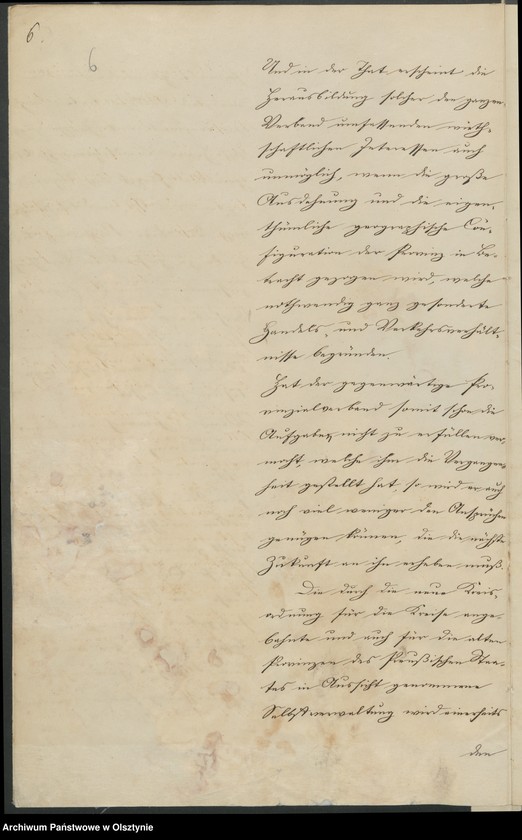 6.
6
Und in der That erscheint die
Herausbildung solcher den ganzen
Verband umfassenden wirth-
schaftlichen Interessen auch
unmöglich, wenn die große
Ausdehnung und die eigen-
thümliche geographische Con-
figuration der Provinz in Be-
tracht gezogen wird, welche
nothwendig ganz gesonderte
Handels- und Verkehrsverhält-
nisse begründen.
Hat der gegenwärtige Pro-
vinzialverband somit schon die
Aufgaben nicht zu erfüllen ver-
mocht, welche ihm die Vergangen-
heit gestellt hat, so wird er auch
noch viel weniger den Ansprüchen
genügen können, die die nächste
Zukunft an ihn erheben muß.
Die durch die neue Kreis-
ordnung für die Kreise ange-
bahnte und auch für die alten
Provinzen des Preußischen Staa-
tes in Aussicht genommene
Selbstverwaltung wird einerseits
den
Archiwum Państwowe w Olsztynie